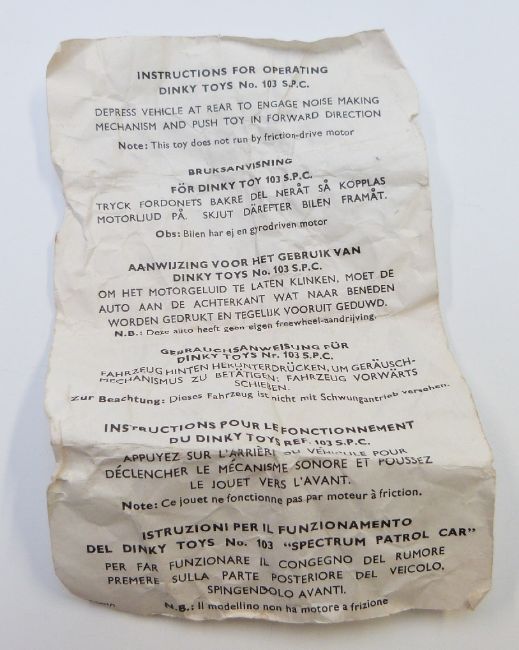 INSTRUCTIONS FOR OPERATING
DINKY TOYS No. 103 S.P.C.
DEPRESS VEHICLE AT REAR TO ENGAGE NOISE MAKING
MECHANISM AND PUSH TOY IN FORWARD DIRECTION
Note: This toy does not run by friction-drive motor
BRUKSANVISNING
FÖR DINKY TOY 103 S.P.C.
TRYCK FORDONETS BAKRE DEL NERÅT SÅ KOPPLAS
MOTORLJUD PÅ. SKJUT DÄREFTER BILEN FRAMÅT.
Obs: Bilen har ej en gyrodriven motor
AANWIJZING VOOR HET GEBRUIK VAN
DINKY TOYS No. 103 S.P.C.
OM HET MOTORGELUID TE LATEN KLINKEN, MOET DE
AUTO AAN DE ACHTERKANT WAT NAAR BENEDEN
WORDEN GEDRUKT EN TEGELIJK VOORUIT GEDUWD.
N.B.: Deze auto heeft geen eigen freewheel-aandrijving.
GEBRAUCHSANWEISUNG FÜR
DINKY TOYS Nr. 103 S.P.C.
FAHRZEUG HINTEN HERUNTERDRÜCKEN, UM GERÄUSCH-
MECHANISMUS ZU BETÄTIGEN: FAHRZEUG VORWÄRTS
SCHIEBEN.
Zur Beachtung: Dieses Fahrzeug ist nicht mit Schwungantrieb versehen.
INSTRUCTIONS POUR LE FONCTIONNEMENT
DU DINKY TOYS REF. 103 S.P.C.
APPUYEZ SUR L'ARRIÈRE DU VÉHICULE POUR
DÉCLENCHER LE MÉCANISME SONORE ET POUSSEZ
LE JOUET VERS L'AVANT.
Note: Ce jouet ne fonctionne pas par moteur à friction.
ISTRUZIONI PER IL FUNZIONAMENTO
DEL DINKY TOYS No. 103 "SPECTRUM PATROL CAR"
PER FAR FUNZIONARE IL CONGEGNO DEL RUMORE
PREMERE SULLA PARTE POSTERIORE DEL VEICOLO,
SPINGENDOLO AVANTI.
N.B.: Il modellino non ha motore a frizione